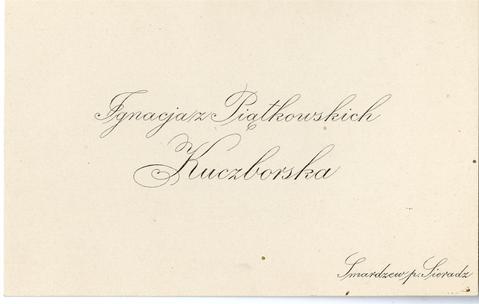 Ignacja z Piątkowskich
Kuczborska
Smardzew p. Sieradz